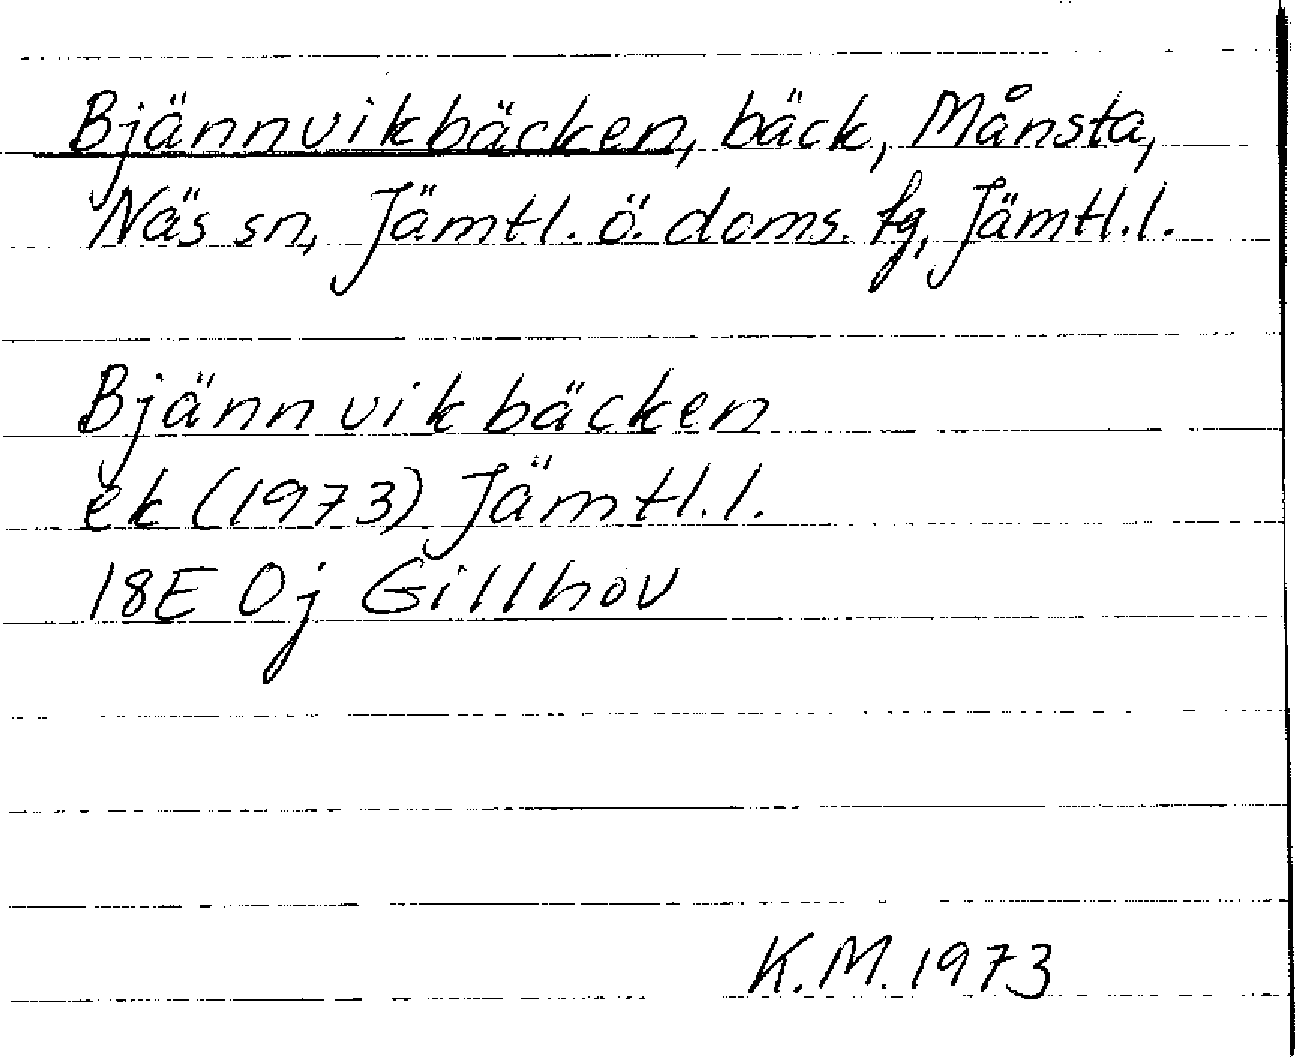 Bjännvikbäcken, bäck, Månsta,
Näs sn, Jämtl. ö. doms. fg, Jämtl.l.
Bjännvikbäcken
ek (1973) Jämtl.l.
18E 0j Gillhov
K.M. 1973